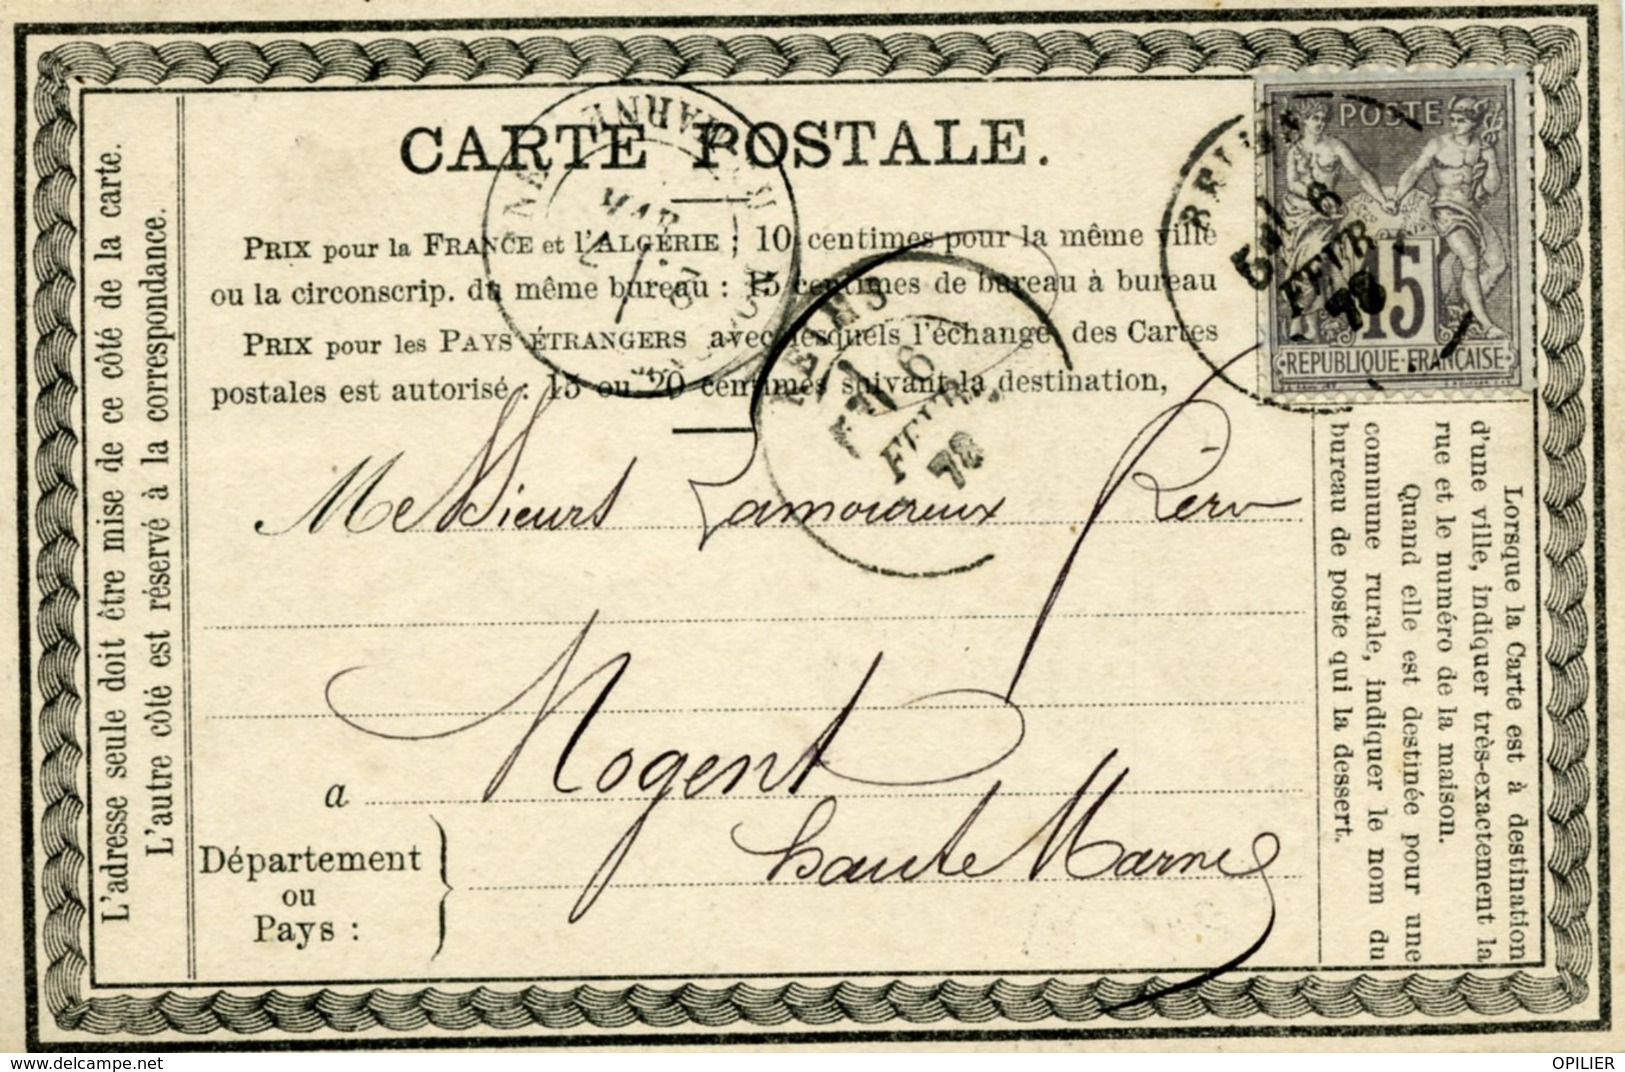 CARTE POSTALE.
PRIX pour la FRANCE et l'ALGÉRIE ; 10 centimes pour la même ville
ou la circonscrip. du même bureau : 15 centimes de bureau à bureau
PRIX pour les PAYS ÉTRANGERS avec lesquels l'échange des Cartes
postales est autorisé : 15 ou 20 centimes suivant la destination,
POSTE
15
REPUBLIQUE FRANÇAISE
6
FEVR
78
REIMS
6
FEVR
78
MARNE
Messieurs Lamoureux
Nogent
a
haute Marne
Département
ou
Pays :
L'adresse seule doit être mise de ce côté de la carte.
L'autre côté est réservé à la correspondance.
Lorsque la Carte est à destination
d'une ville, indiquer très-exactement la
rue et le numéro de la maison.
Quand elle est destinée pour une
commune rurale, indiquer le nom du
bureau de poste qui la dessert.
www.delcampe.net
OPILIER